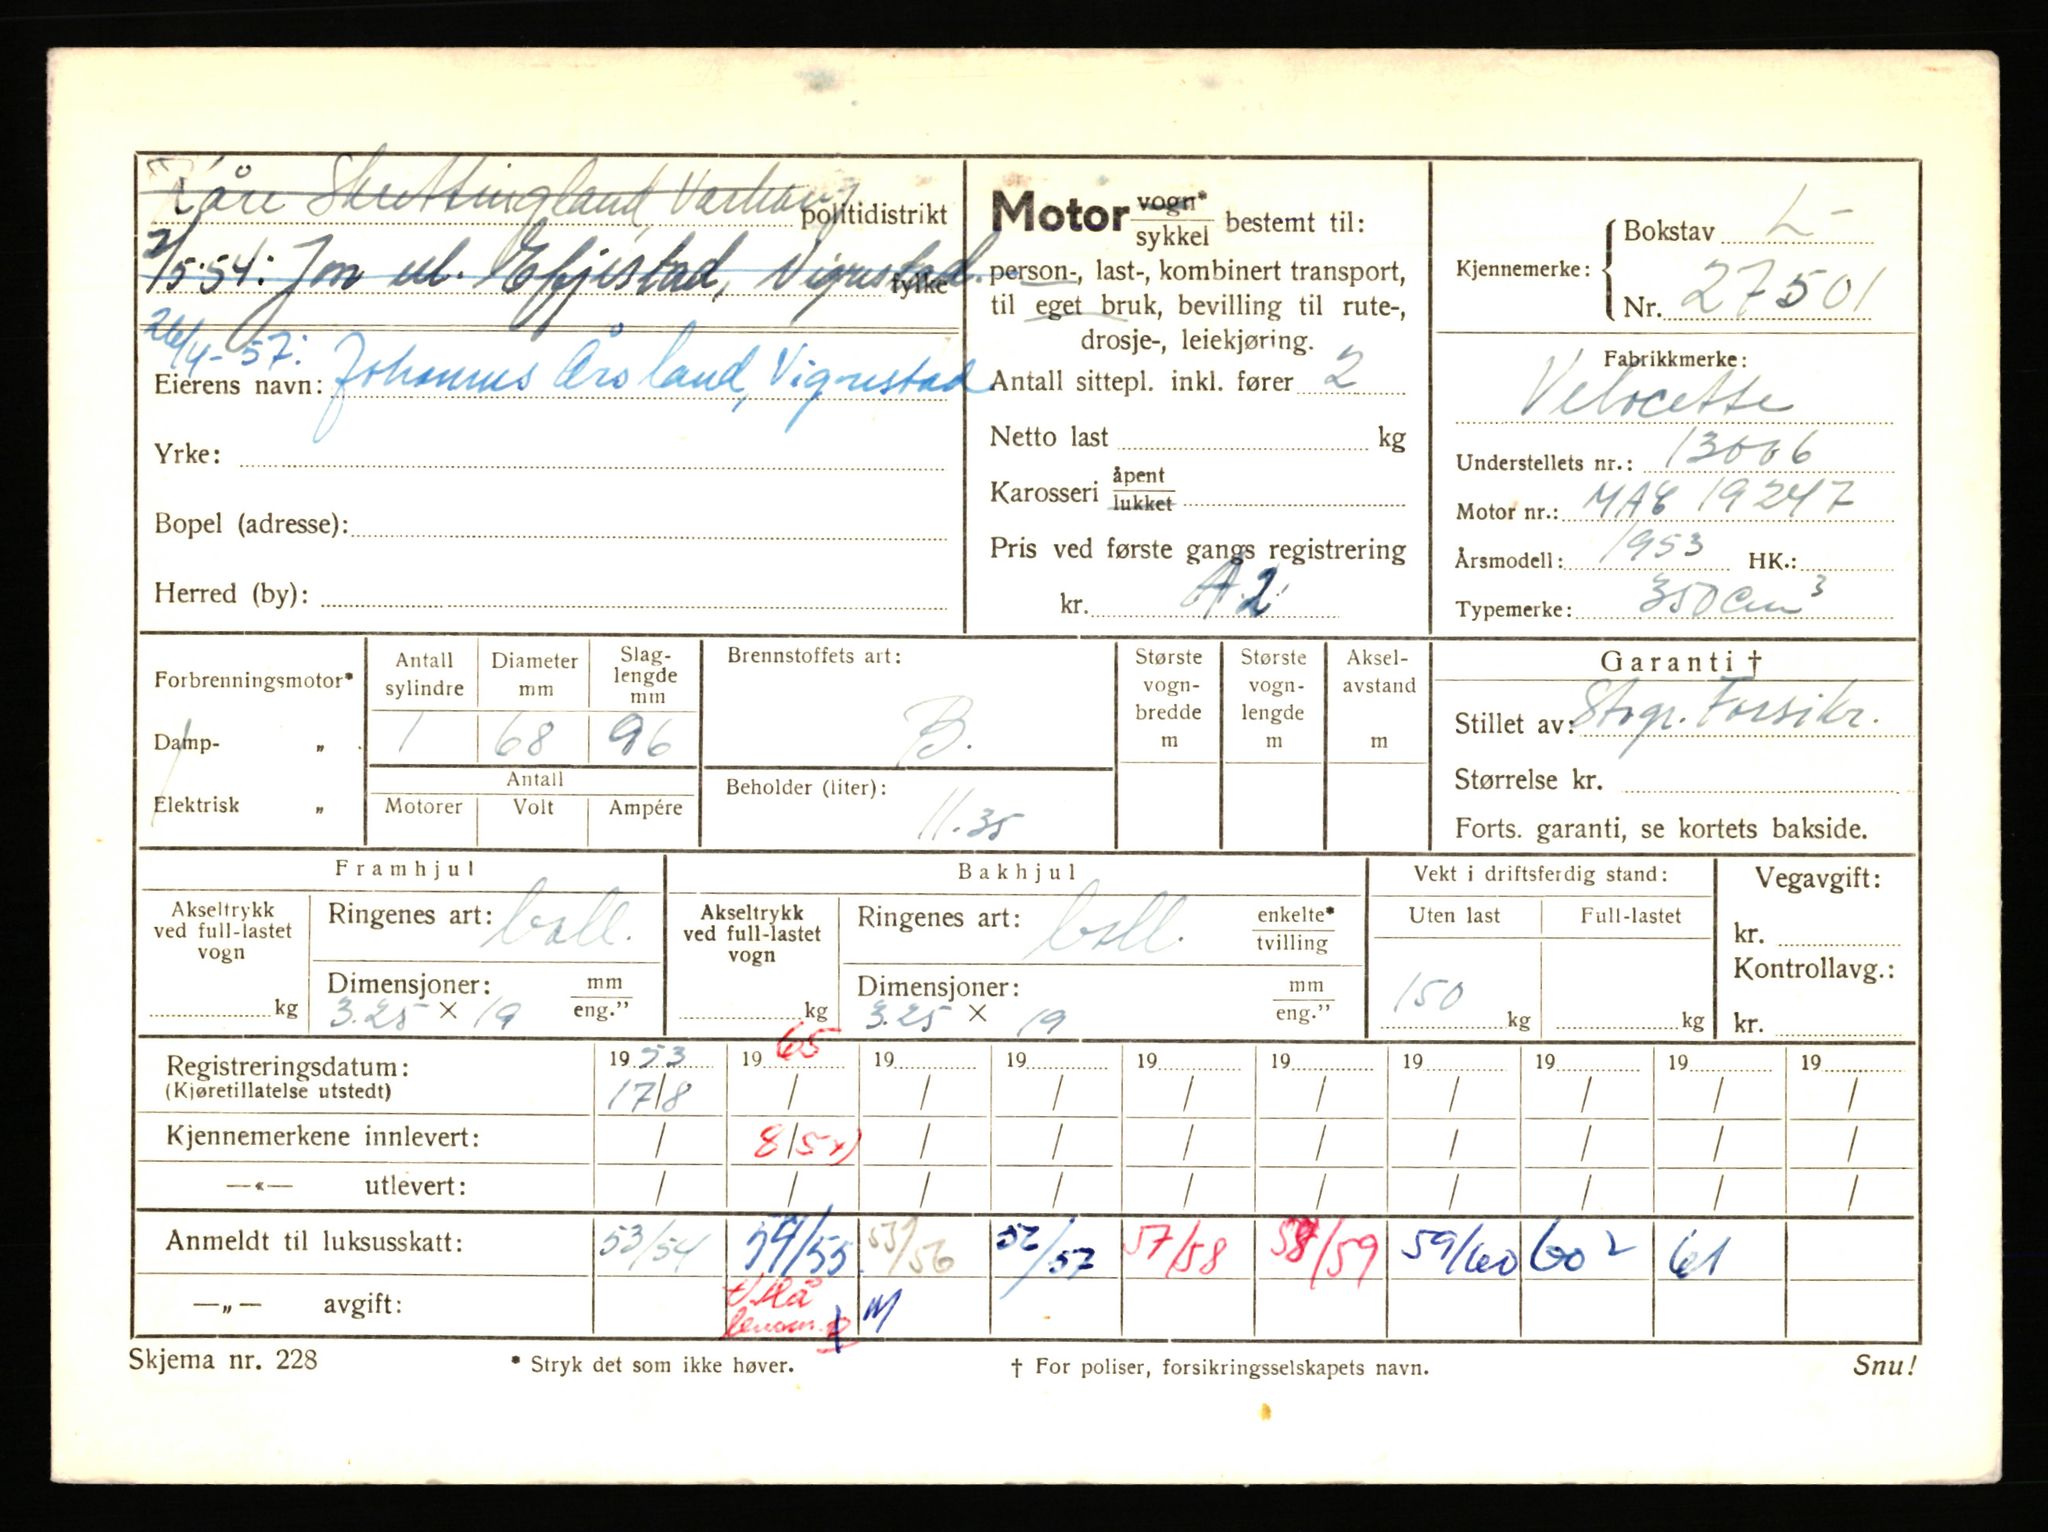 Kåre Skrettingland, Varhaug politidistrikt
2/5.54: Jon M. Efjestad, Vigrestad. fylke
26/4-57:
Eierens navn: Johannes Årsland, Vigrestad
Yrke:
Bopel (adresse):
Herred (by):
Motor vogn* / sykkel bestemt til:
person-, last-, kombinert transport,
til eget bruk, bevilling til rute-,
drosje-, leiekjøring.
Antall sittepl. inkl. fører 2
Netto last kg
Karosseri åpent / lukket
Pris ved første gangs registrering
kr. A2
Kjennemerke: Bokstav L-
Nr. 27501
Fabrikkmerke:
Velocette
Understellets nr.: 13006
Motor nr.: MAC 19247
Årsmodell: 1953 HK.:
Typemerke: 350 cm³
Forbrenningsmotor*
Damp- „
Elektrisk „
Antall sylindre Diameter mm Slaglengde mm
1 68 96
Antall
Motorer Volt Ampére
Brennstoffets art:
B.
Beholder (liter):
11.35
Største vogn-bredde m
Største vogn-lengde m
Aksel-avstand m
Garanti †
Stillet av: Storgr. Forsikr.
Størrelse kr.
Forts. garanti, se kortets bakside.
Framhjul
Akseltrykk ved full-lastet vogn kg
Ringenes art: ball.
Dimensjoner: mm / eng.”
3.25 × 19
Bakhjul
Akseltrykk ved full-lastet vogn kg
Ringenes art: ball. enkelte* / tvilling
Dimensjoner: mm / eng.”
3.25 × 19
Vekt i driftsferdig stand:
Uten last Full-lastet
150 kg kg
Vegavgift:
kr.
Kontrollavg.:
kr.
Registreringsdatum: 1953 1965 19 19 19 19 19 19 19 19
(Kjøretillatelse utstedt) 17/8 / / / / / / / / /
Kjennemerkene innlevert: / 8/5 x) / / / / / / / /
—«— utlevert: / / / / / / / / / /
Anmeldt til luksusskatt: 53/54 54/55 55/56 56/57 57/58 58/59 59/60 60 2 61
—„— avgift: M
Skjema nr. 228
* Stryk det som ikke høver.
† For poliser, forsikringsselskapets navn.
Snu!